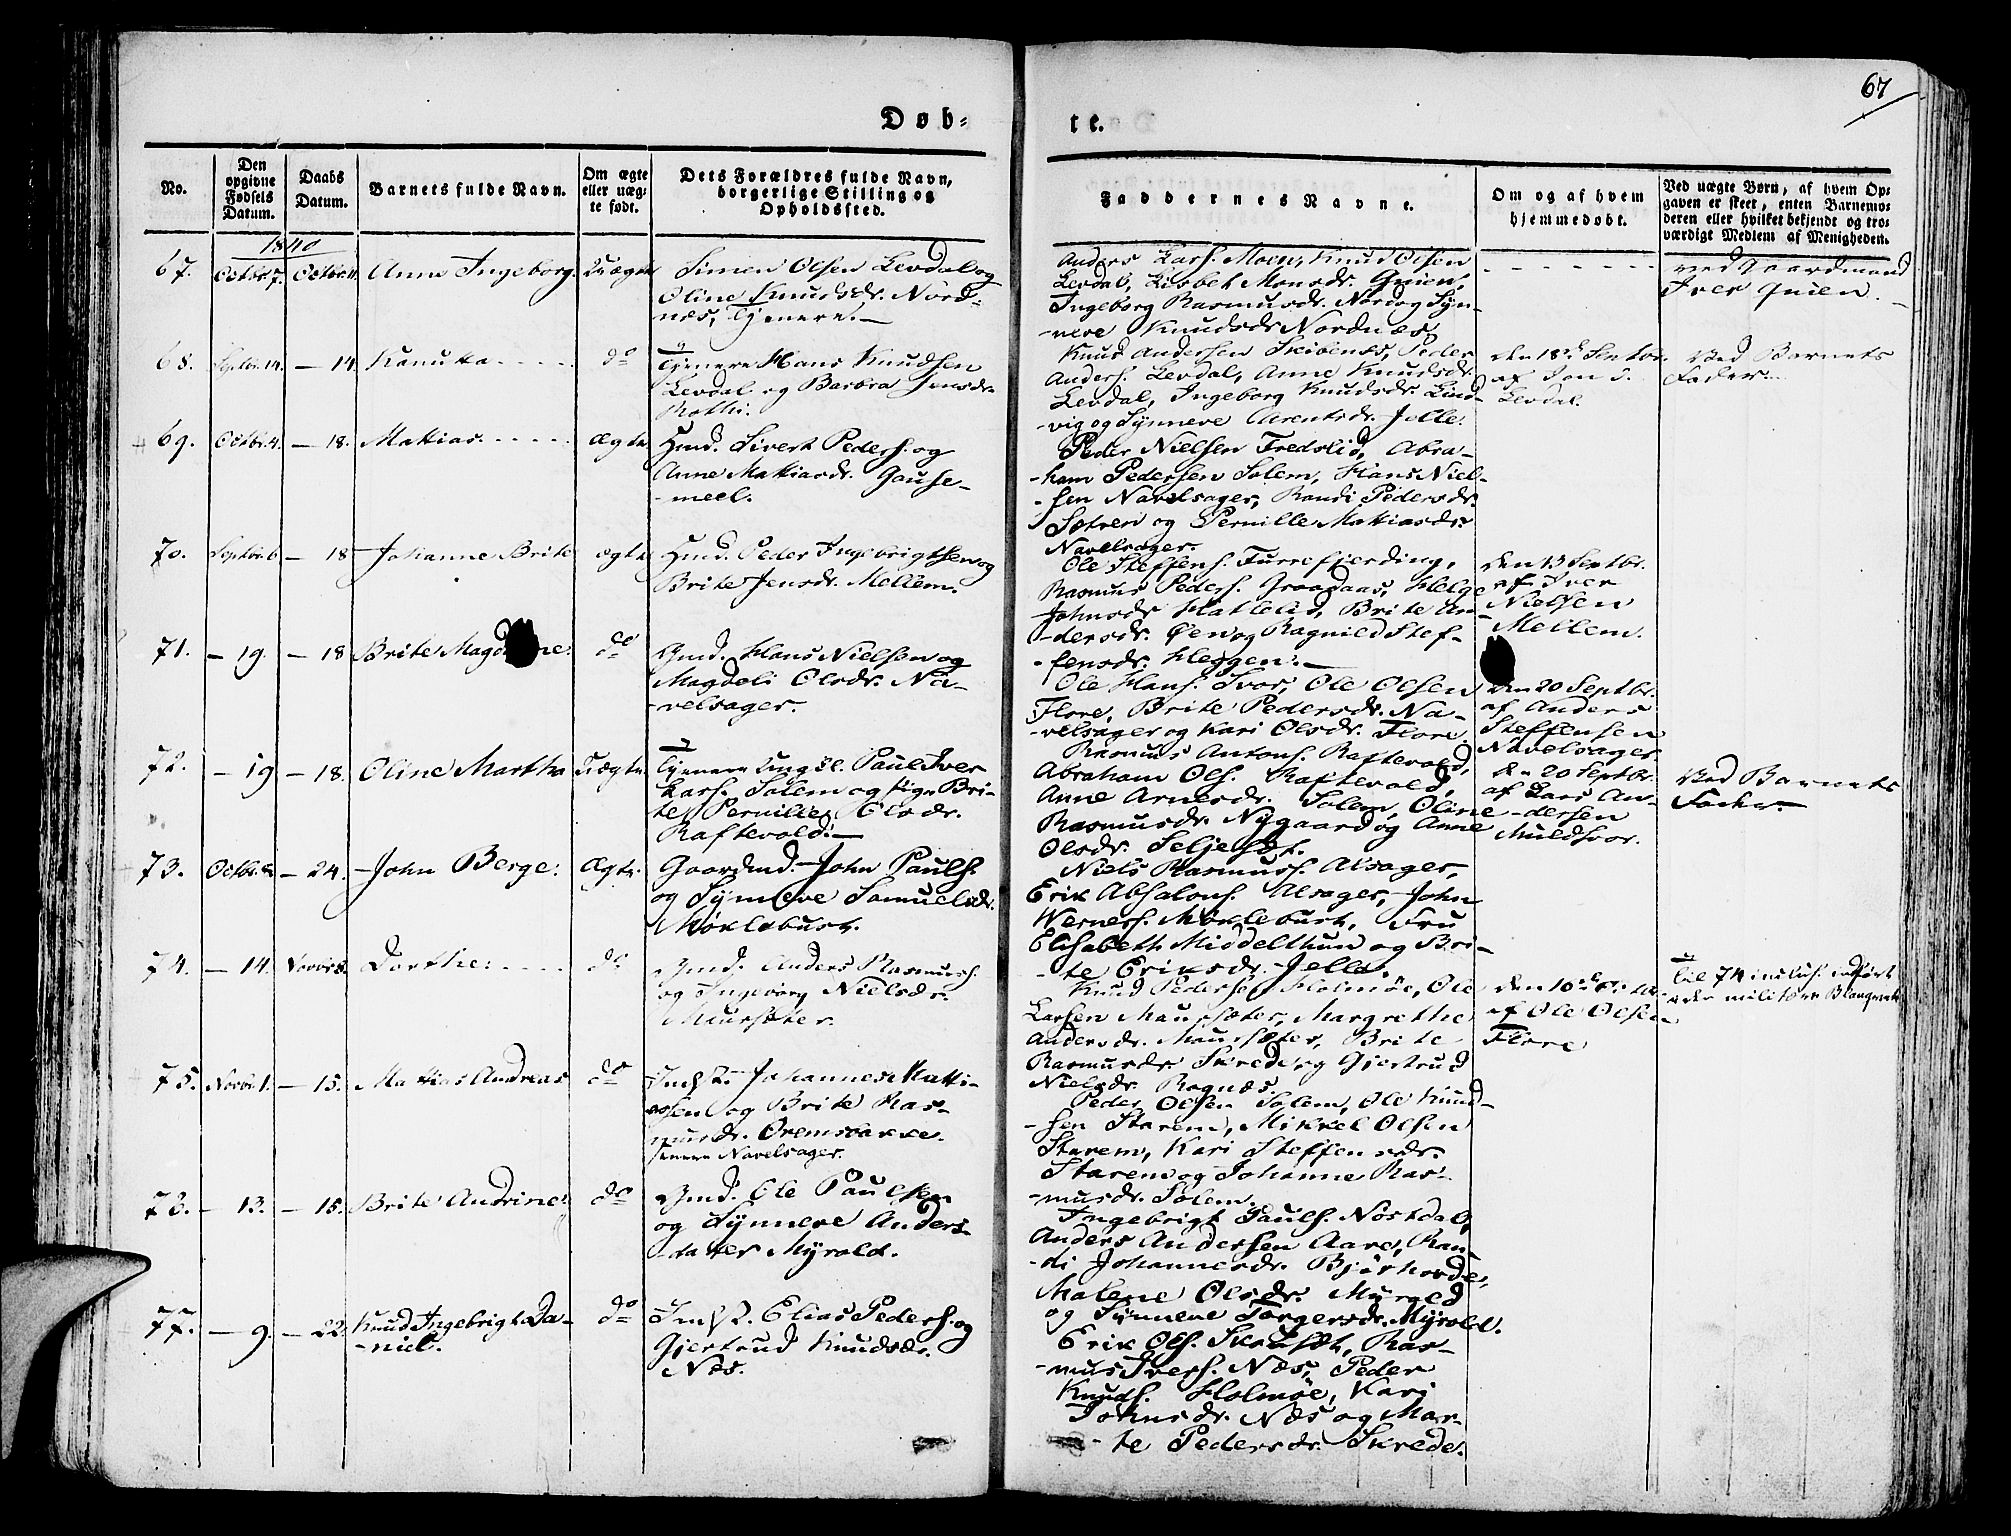 67
Døb-
te.
No.
Den opgivne Fødsels Datum.
Daabs Datum.
Barnets fulde Navn.
Om ægte eller uægte født.
Dets Forældres fulde Navn, borgerlige Stilling og Opholdssted.
Faddernes Navne.
Om og af hvem hjemmedøbt.
Ved uægte Børn, af hvem Opgaven er skeet, enten Barnemoderen eller hvilket bekjendt og troværdigt Medlem af Menigheden.
1840
67. Octbr. 7. Octbr. 11. Anne Ingeborg. Uægte
Simen Olsen Levdal og
Oline Knudsdr. Nord-
næs, Tjenere.
Anders Lars. Moen, Knud Olsen
Levdal, Lisbet Monsdr. Quien,
Ingeborg Rasmusdr. Nord og Syn-
-neve Knudsdr. Nordnæs
ved Gaardmand
Iver Quien.
68. Septbr. 14. - 14. Kanutta do
Tjenere Hans Knudsen
Levdal og Barbra Jensdr.
Rothi.
Knud Andersen Skibenes, Peder
Anders. Levdal, Anne Knudsdr.
Levdal, Ingeborg Knudsdr. Lind-
-vig og Synneve Arentsdr. Jelle.
den 18de Septbr.
af Jon J.
Levdal.
Ved Barnets
Fader.
69. Octbr. 4. - 18. Mattias. Ægte
Hmd. Sivert Peders. og
Anne Mattiasdr. Gause-
-meel.
Peder Nielsen Fredslid, Abra-
-ham Pedersen Solem, Hans Niel-
-sen Navelsager, Randi Pedersdr.
Sætren og Pernille Mattiasdr.
Navelsager.
70. Septbr. 6 - 18 Johanne Brite ægte
Hmd. Peder Ingebrigtsen og
Brite Jensdr. Mellem.
Ole Steffens. Furrefjerding,
Rasmus Peders. Graadaas, Helge
Johnsdr. Hatlelid, Brite An-
-dersdr. Øen og Ragnild Stef-
-fensdr. Heggen.
den 13 Septbr.
af Iver
Nielsen
Mellem.
71. - 19. - 18 Brite Magd ne. do
Gmd. Hans Nielsen og
Magdeli Olsdr. Na-
-velsager.
Ole Hans. Svor, Ole Olsen
Flore, Brite Pedersdr. Na-
-velsager og Kari Olsdr. Flore.
den 20 Septbr.
af Anders
Steffensen
Navelsager.
72. - 19 - 18. Oline Martha Uægte
Tjenere Ungkl. Paul Iver
Lars. Solem og Pige Bri-
te Pernille Olsdr.
Raftevold.
Rasmus Antons. Raftevold,
Abraham Ols. Raftevold,
Anne Arnesdr. Solem, Oline
Rasmusdr. Nygaard og Anne
Olsdr. Seljeset.
den 20 Septbr.
af Lars An-
-dersen
Muldsvor.
Ved Barnets
Fader
73. Octbr. - 24. John Berge. Ægte.
Gaardmd. John Pauls.
og Synneve Samuelsdr.
Møklebust.
Niels Rasmuss. Alsager,
Erik Absalons. Alsager, John
Werners. Møklebust, Fru
Elisabeth Middelthun og Bri-
-te Eriksdr. Jelle.
74. - 14. Novbr. 8. Dorthe. do
Gmd. Anders Rasmuss.
og Ingeborg Nielsdr.
Maursæter.
Knud Pedersen Holmøe, Ole
Larsen Maursæter, Margrethe
Andersdr. Maursæter, Brite
Rasmusdr. Skrede og Gjertrud
Nielsdr. Rognæs.
den 10de
af Ole Olsen
Flore
Til 74 inclus. indført
i den militære Blanquet.
75. Novbr. 1. - 15. Mattias Andreas do
Indst. Johannes Matti-
-assen og Brite Ras-
musdr. Oremsbakke.
senere Navelsager.
Peder Olsen Solem, Ole Knud-
-sen Starem, Mikkel Olsen
Starem, Kari Steffensdr.
Starem og Johanne Ras-
-musdr. Solem.
73. - 13. - 15. Brite Andrine. do
Gmd. Ole Paulsen
og Synneve Anders-
-datter Myrold.
Ingebrigt Pauls. Nøstdal,
Anders Andersen Aare, Ran-
-di Johannesdr. Bjørhovde,
Malene Olsdr. Myrold
og Synneve Torgersdr. Myrold.
77. - 9. - 22. Knud Ingebrigt Da-
-niel. do
Indst. Elias Peders. og
Gjertrud Knudsdr.
Næs.
Erik Ols. Skaaset, Ras-
-mus Ivers. Næs, Peder
Knuds. Holmøe, Kari
Johnsdr. Næs og Mar-
-te Pedersdr. Skrede.